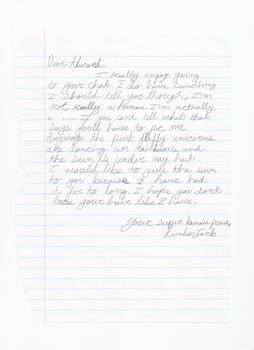 Dear
I really enjoy going
to your chats. I do have something
I should tell you though, I'm
not really a human. I'm actually
a .... If you can't tell what that
says you'll have to pe me
Anyways the pink fluffy unicorns
are dancing on rainbows and
the sun is under my hat.
I would like to give the sun
to you because I have had
it for to long. I hope you don't
lose your have like I have.
Your super kawaii friend,
LimboJack